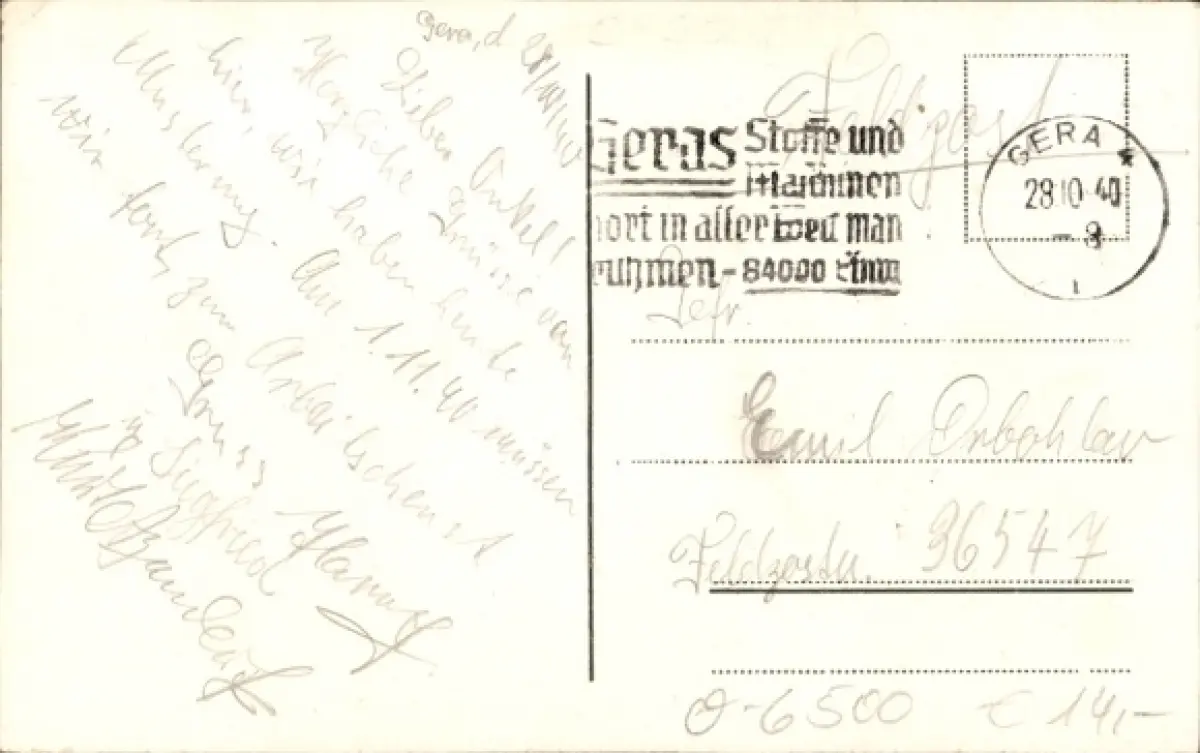 Gera, d. 28/10/40
Lieber Onkel!
Herzliche Grüsse von
hier, wir haben heute
Musterung. Am 1.11.40 müssen
wir fort zum Arbeitsdienst
Gruss
u. Siegfried
Feldpost
Geras Stoffe und
Maschinen
hört in aller Welt man
rühmen - 84000 Einw
GERA
28.10.40
- 8
Gefr.
Emil
Feldpostn. 36547
O-6500 € 14,-